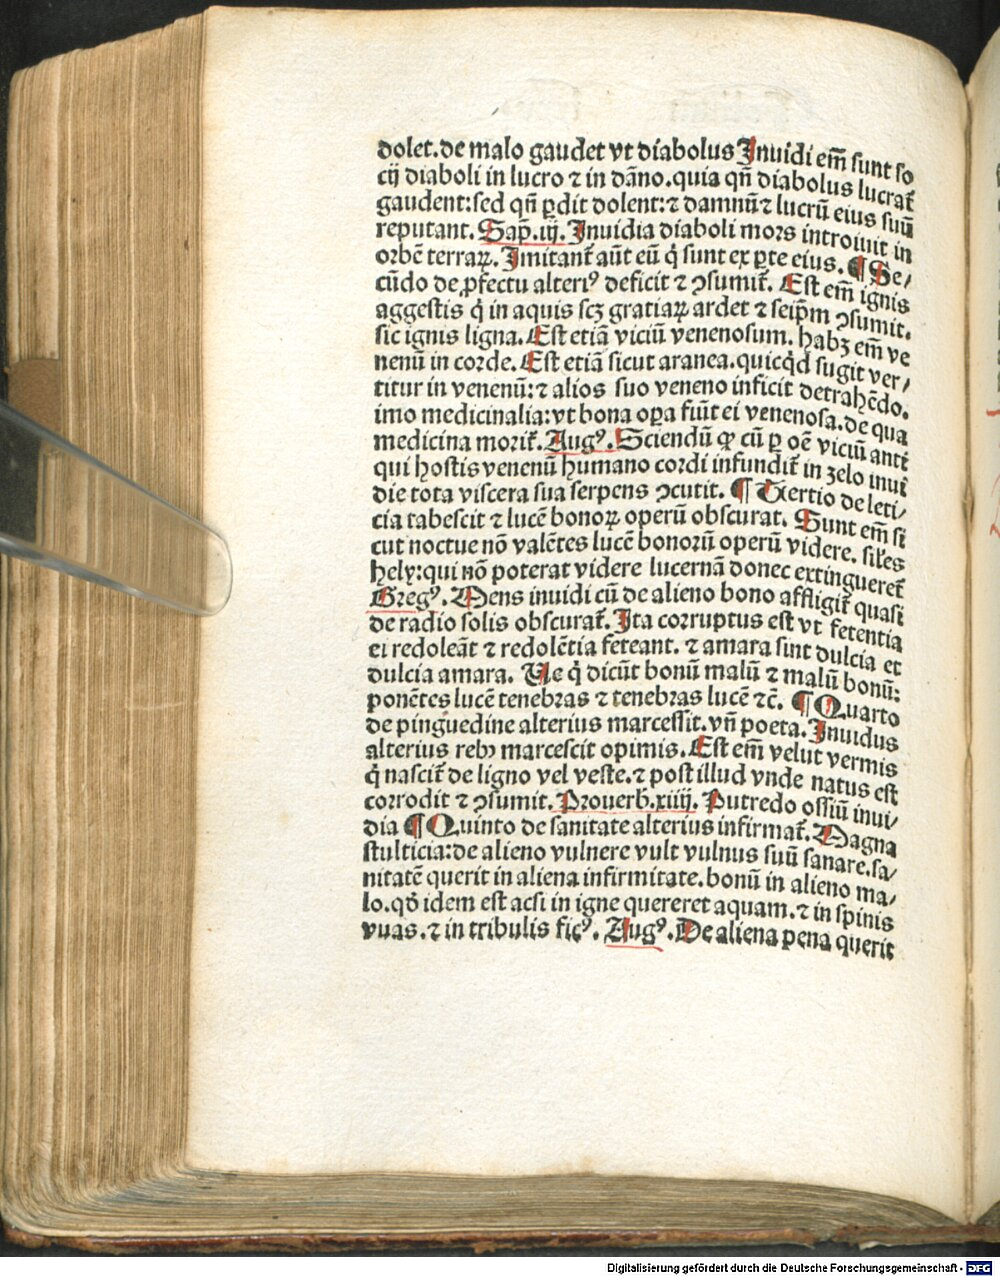 dolet.de malo gaudet vt diabolus Inuidi em̄ sunt so
cij diaboli in lucro ⁊ in dāno.quia qn̄ diabolus lucrat̄
gaudent:sed qn̄ ꝑdit dolent:⁊ damnū⁊ lucrū eius suū
reputant. Sap̄.iij. Inuidia diaboli mors introiuit in
orbē terraꝝ. Imitant̄ aūt eū q̇ sunt ex ꝑte eius. ¶ Se/
cūdo de ꝓfectu alteriꝰ deficit ⁊ ꝯsumit̄. Est em̄ ignis
aggestis q̇ in aquis scꝫ gratiaꝝ ardet ⁊ seip̄m ꝯsumit.
sic ignis ligna. Est etiā viciū venenosum. habꝫ em̄ ve
nenū in corde. Est etiā sicut aranea.quicq̇d sugit ver/
titur in venenū:⁊ alios suo veneno inficit detrahēdo.
imo medicinalia:vt bona oꝑa fiūt ei venenosa.de qua
medicina morit̄. Augꝰ. Sciendū ꝙ cū ꝑ oē viciū anti
qui hostis venenū humano cordi infundit̄ in zelo inui
die tota viscera sua serpens ꝯcutit. ¶ Tertio de leti/
cia tabescit ⁊ lucē bonoꝝ operū obscurat. Sunt em̄ si
cut noctue nō valētes lucē bonorū operū videre. sil̄es
hely:qui nō poterat videre lucernā donec extingueret̄
Gregꝰ. Mens inuidi cū de alieno bono affligit̄ quasi
de radio solis obscurat̄. Ita corruptus est vt fetentia
ei redoleāt ⁊ redolētia feteant. ⁊ amara sint dulcia et
dulcia amara. Ve q̇ dicūt bonū malū ⁊ malū bonū:
ponētes lucē tenebras ⁊ tenebras lucē ⁊c̄. ¶ Quarto
de pinguedine alterius marcessit.vn̄ poeta. Inuidus
alterius rebꝰ marcescit opimis. Est em̄ velut vermis
q̇ nascit̄ de ligno vel veste.⁊ post illud vnde natus est
corrodit ⁊ ꝯsumit. Prouerb.xiiij. Putredo ossiū inui/
dia ¶ Quinto de sanitate alterius infirmat̄. Magna
stulticia:de alieno vulnere vult vulnus suū sanare.sa/
nitatē querit in aliena infirmitate.bonū in alieno ma/
lo.qd̄ idem est acsi in igne quereret aquam.⁊ in spinis
vuas.⁊ in tribulis ficꝰ. Augꝰ. De aliena pena querit
Digitalisierung gefördert durch die Deutsche Forschungsgemeinschaft - DFG